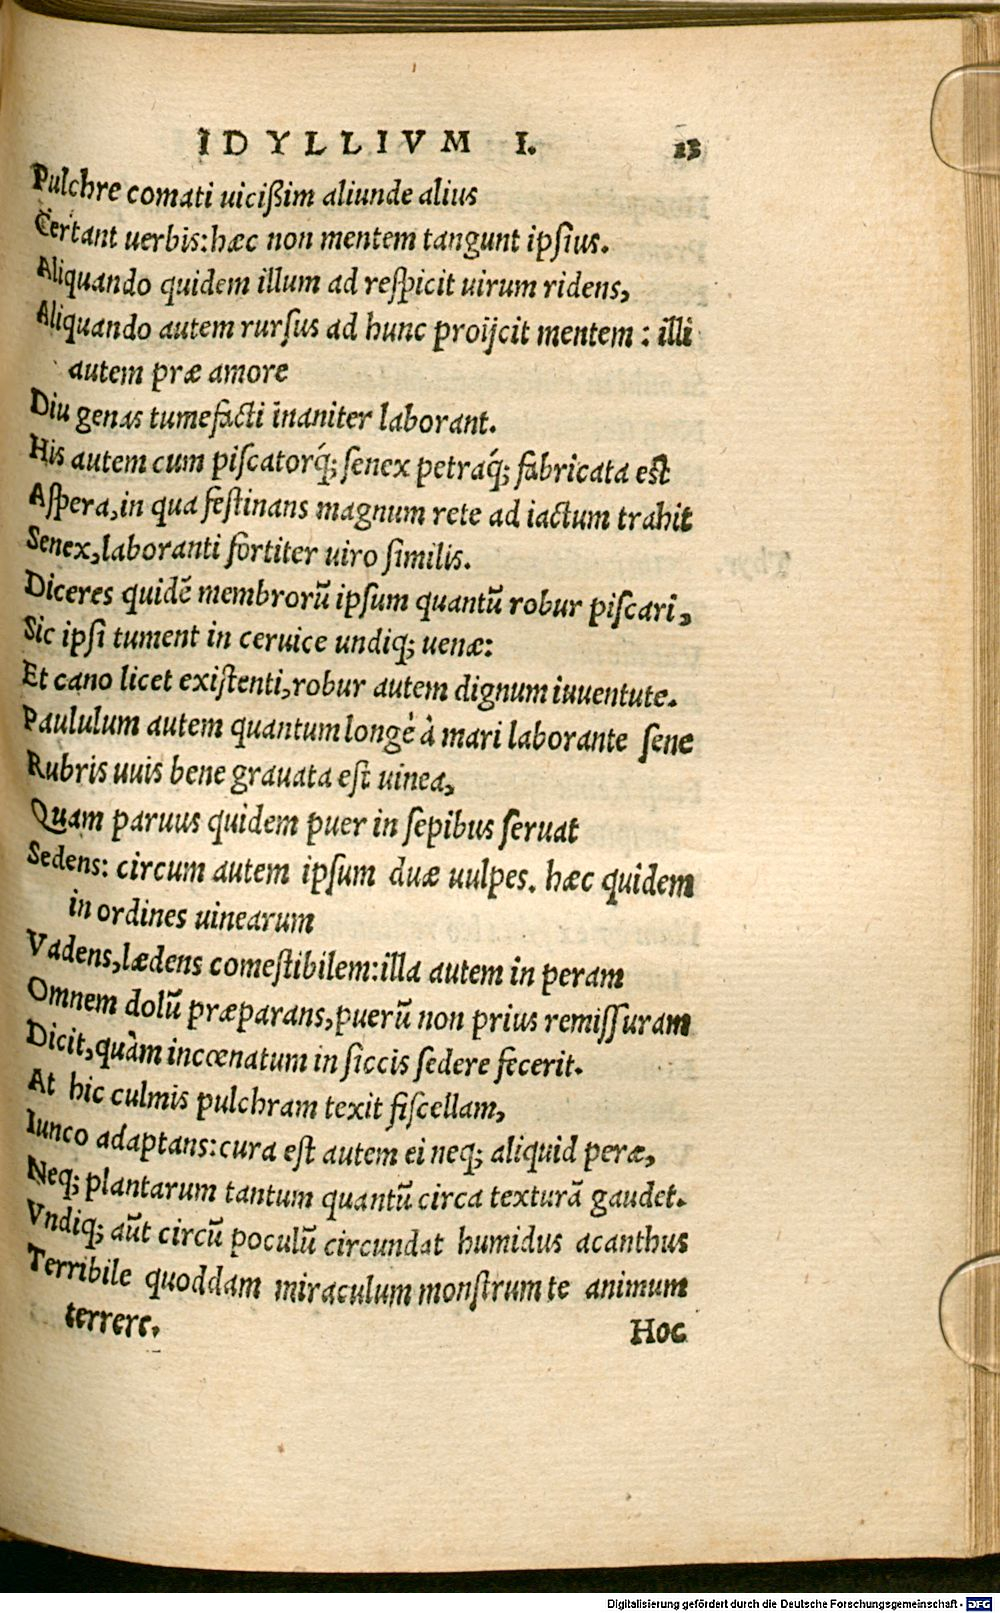 IDYLLIVM I. 13
Pulchre comati uicißim aliunde alius
Certant uerbis: hæc non mentem tangunt ipsius.
Aliquando quidem illum ad respicit uirum ridens,
Aliquando autem rursus ad hunc proijcit mentem: illi
autem præ amore
Diu genas tumefacti inaniter laborant.
His autem cum piscatorq́; senex petraq́; fabricata est
Aspera, in qua festinans magnum rete ad iactum trahit
Senex, laboranti fortiter uiro similis.
Diceres quidē membrorū ipsum quantū robur piscari,
Sic ipsi tument in ceruice undiq; uenæ:
Et cano licet existenti, robur autem dignum iuuentute.
Paululum autem quantum longè à mari laborante sene
Rubris uuis bene grauata est uinea,
Quam paruus quidem puer in sepibus seruat
Sedens: circum autem ipsum duæ uulpes. hæc quidem
in ordines uinearum
Vadens, lædens comestibilem: illa autem in peram
Omnem dolū præparans, puerū non prius remissuram
Dicit, quàm incœnatum in siccis sedere fecerit.
At hic culmis pulchram texit fiscellam,
Iunco adaptans: cura est autem ei neq; aliquid peræ,
Neq; plantarum tantum quantū circa texturā gaudet.
Vndiq; aūt circū poculū circundat humidus acanthus
Terribile quoddam miraculum monstrum te animum
terrere.
Hoc
Digitalisierung gefördert durch die Deutsche Forschungsgemeinschaft - DFG